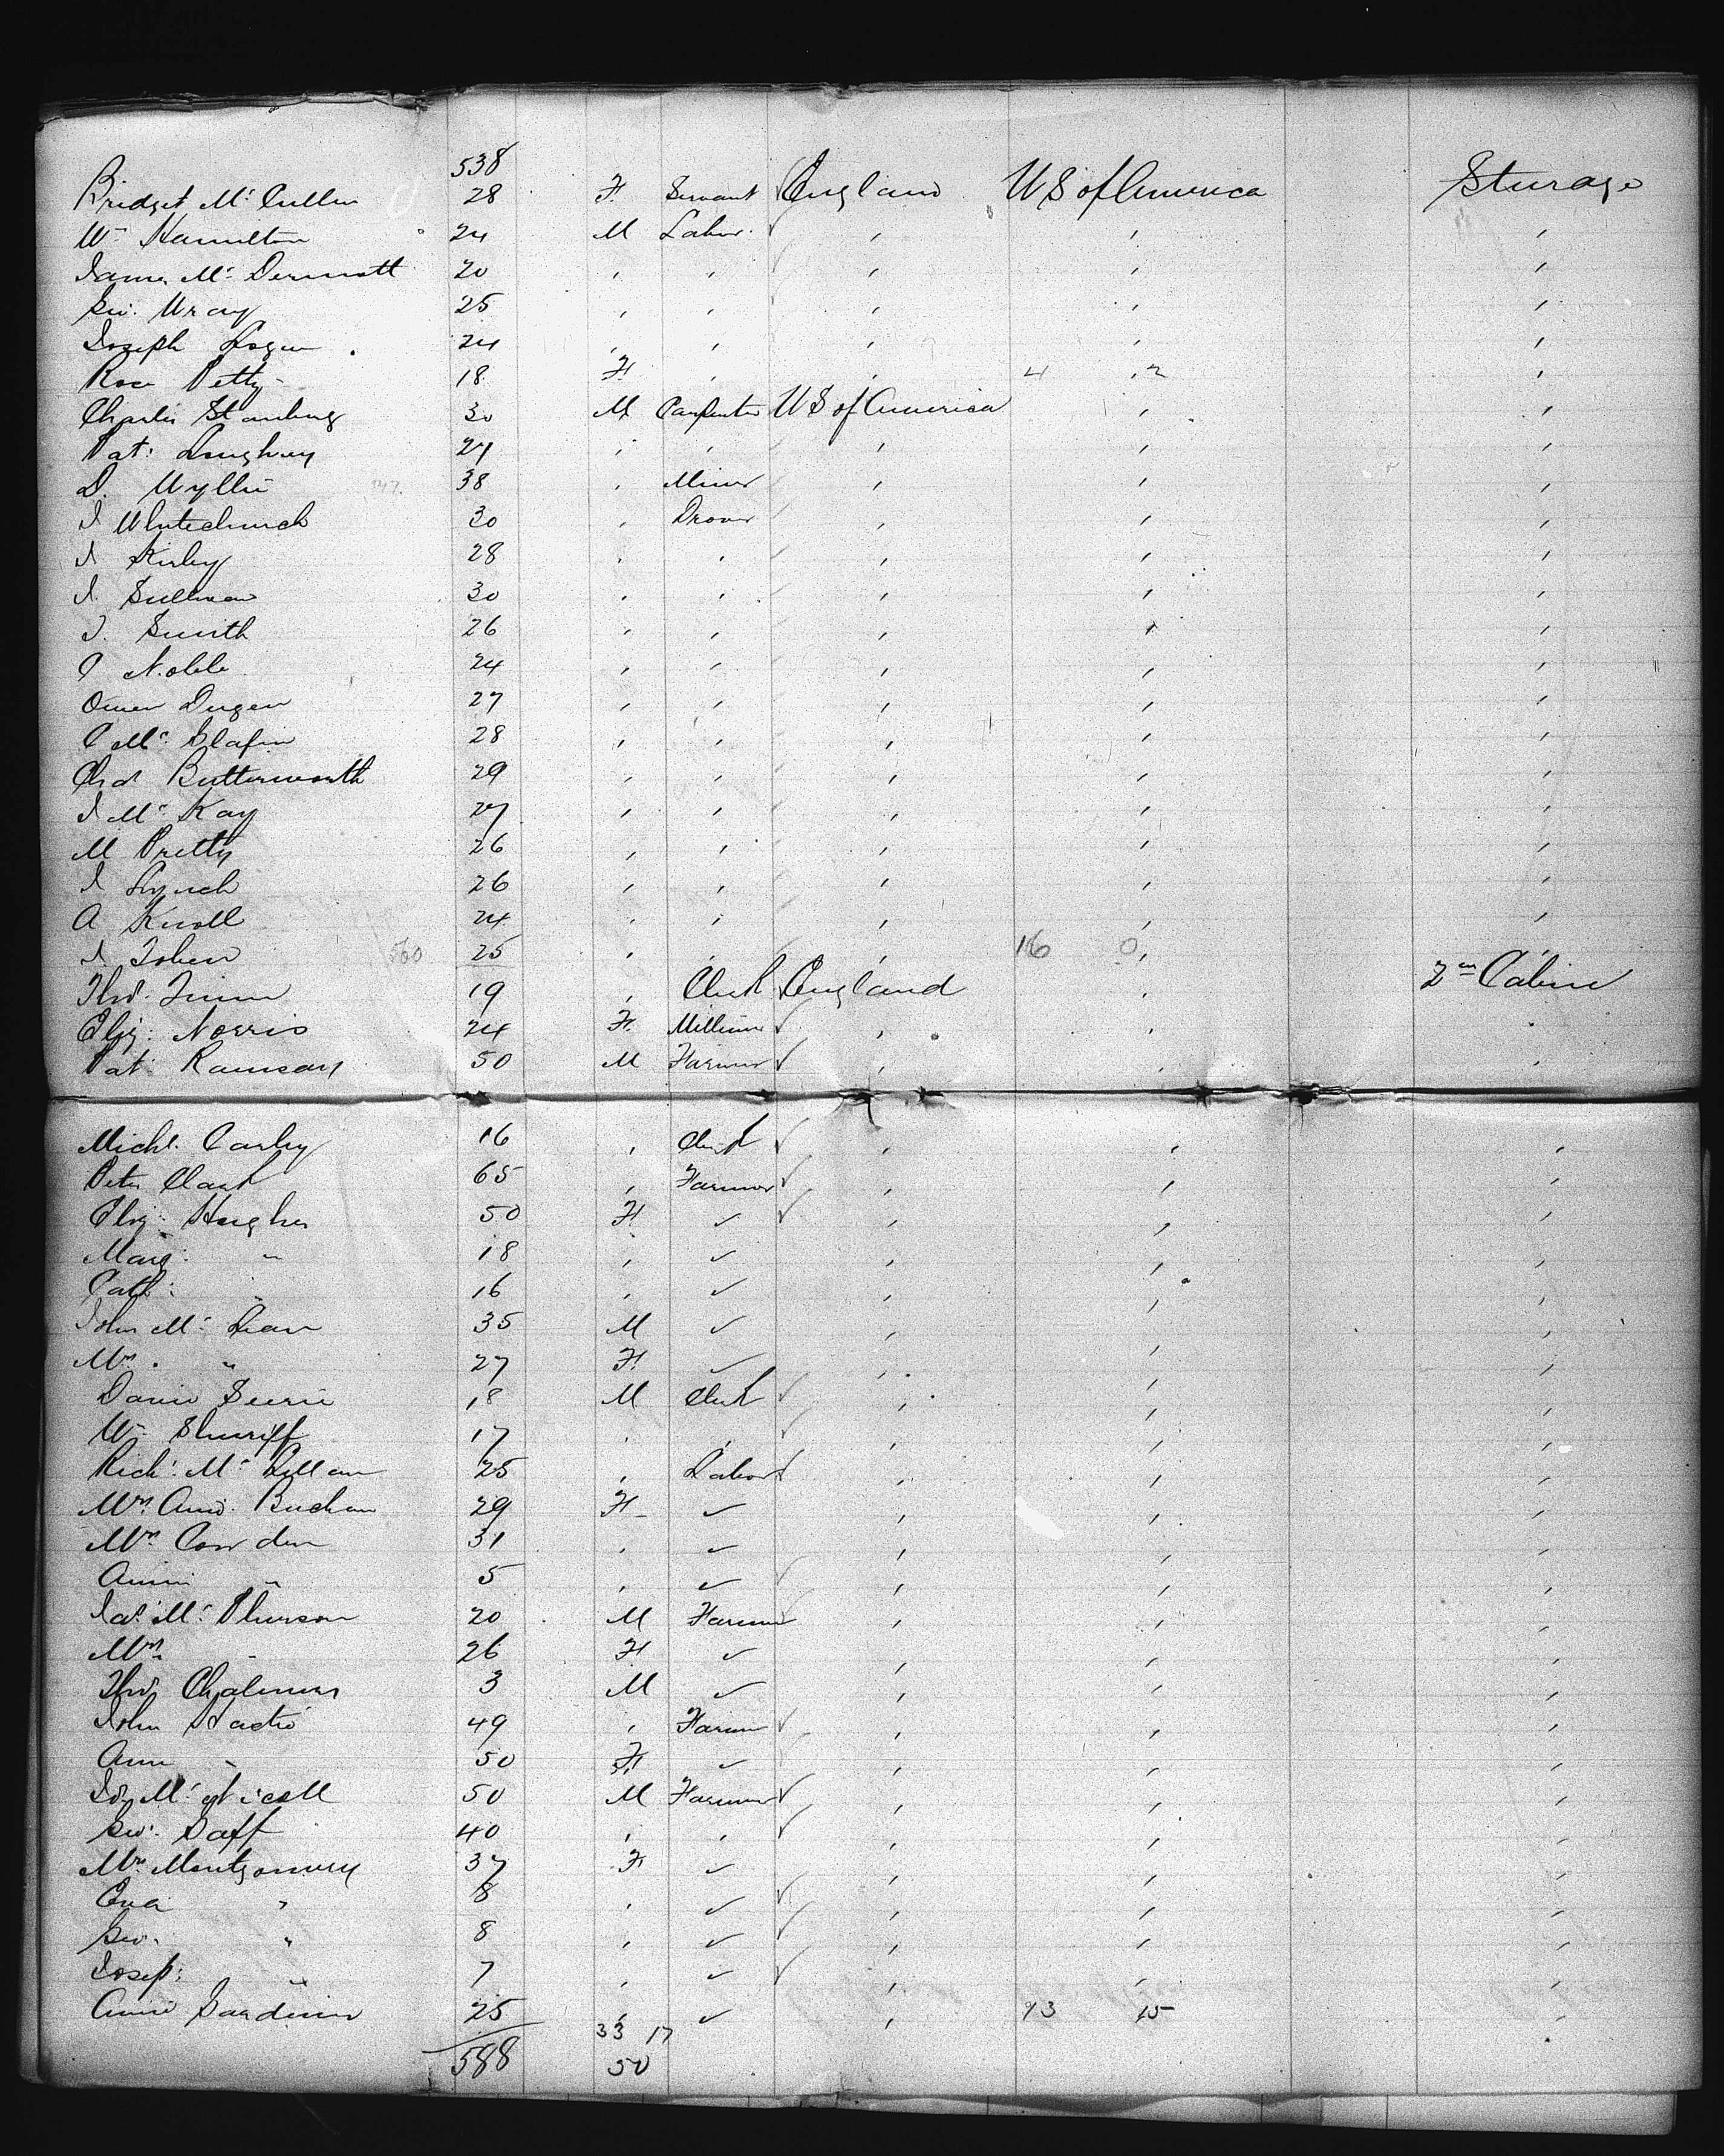 538
Bridget Mc Cullen 28 F Servant England U S of America Sturage
Wm Hamilton 24 M Labor " " "
James Mc Dermott 20 " " " " "
Geo. Wray 25 " " " " "
Joseph Logan 24 " " " " "
Rose Petty 18 F " " 4 " 2 "
Charles Stamburg 30 M Carpenter U S of America " "
Pat: Loughrey 27 " " " " "
D. Wyllie 38 " Miner " " "
J Whitechurch 30 " Drover " " "
J Kirby 28 " " " " "
J. Sullivan 30 " " " " "
J. Smith 26 " " " " "
P Noble 24 " " " " "
Owen Dugan 27 " " " " "
P Mc Glafin 28 " " " " "
Chas Butterworth 29 " " " " "
J Mc Kay 27 " " " " "
M Pretty 26 " " " " "
J Lynch 26 " " " " "
A Knoll 24 " " " " "
J. Tobin 560 25 " " " 16 0 " "
Thos. Finn 19 " Clerk England " 2nd Cabin
Eliz: Norris 24 F Milliner " " "
Pat: Ramsay 50 M Farmer " " "
Michl. Carley 16 " Clerk " " "
Peter Clark 65 " Farmer " " "
Eliz: Hughes 50 F ✓ " " "
Marg: " 18 " ✓ " " "
Cath: " 16 " ✓ " " "
John Mc Lean 35 M ✓ " " "
Mrs. " 27 F ✓ " " "
David 18 M Clerk " " "
Wm Shurriff 17 " " " " "
Rich. Mc Lellan 25 " Labor " " "
Mrs. And. Buchan 29 F ✓ " " "
Mrs. Cowden 31 " ✓ " " "
Annie " 5 " ✓ " " "
Jas. Mc Pherson 20 M Farmer " " "
Mrs. " 26 F ✓ " " "
Thos. Chalmers 3 M ✓ " " "
John 49 " Farmer " " "
Ann " 50 F ✓ " " "
Mc Nicoll 50 M Farmer " " "
Geo. Daff 40 " " " " "
Mrs. Montgomery 37 F ✓ " " "
Eva " 8 " ✓ " " "
Geo. " 8 " ✓ " " "
Josep: " 7 " ✓ " " "
Annie Gardiner 25 " ✓ " 13 15 "
33 17
588 50